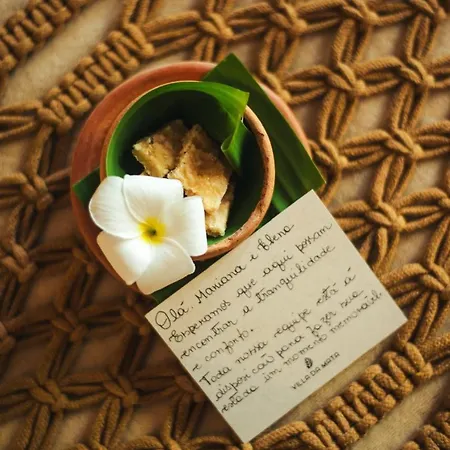 Olá, Mariana e Bleno
Esperamos que aqui possam
encontrar a tranquilidade
e conforto.
Toda nossa equipe está à
disposição para fazer sua
estada um momento memorável.
VILLA DA MATA